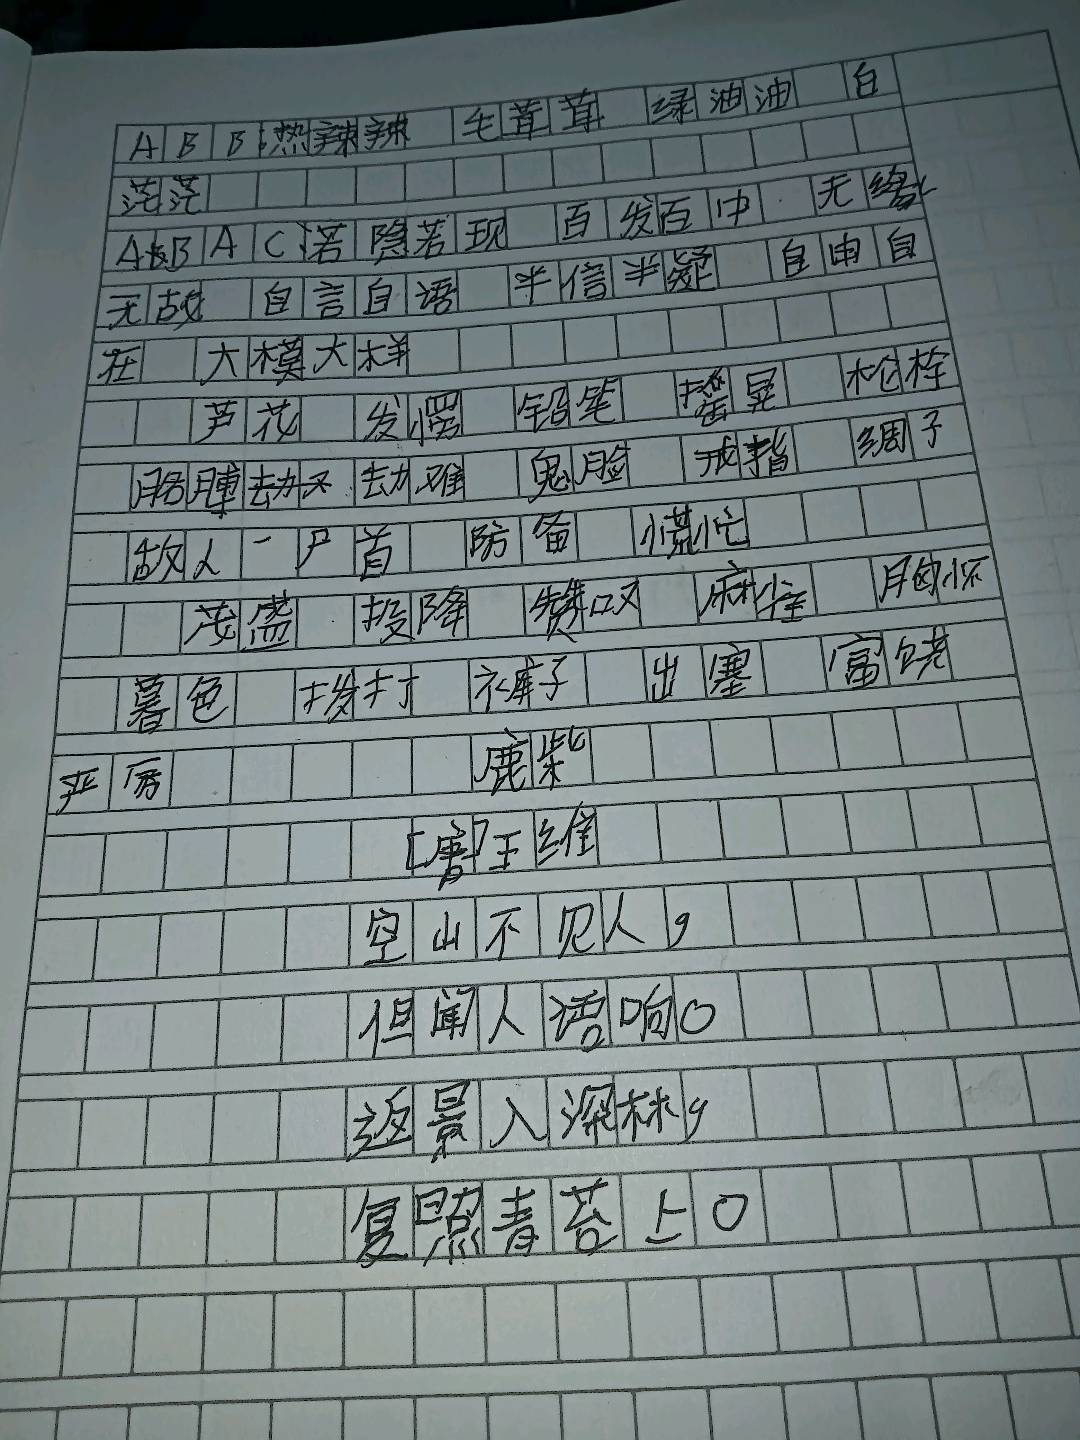 ABB:热辣辣 毛茸茸 绿油油 白
茫茫
ABAC:若隐若现 百发百中 无缘
无故 自言自语 半信半疑 自由自
在 大模大样
芦花 发愣 铅笔 摇晃 枪栓
胳膊 劫难 鬼脸 戒指 绸子
故人 尸首 防备 慌忙
茂盛 投降 赞叹 麻 胸怀
暮色 拨打 裤子 出塞 富饶
严厉 鹿柴
[唐]王维
空山不见人,
但闻人语响。
返景入深林,
复照青苔上。